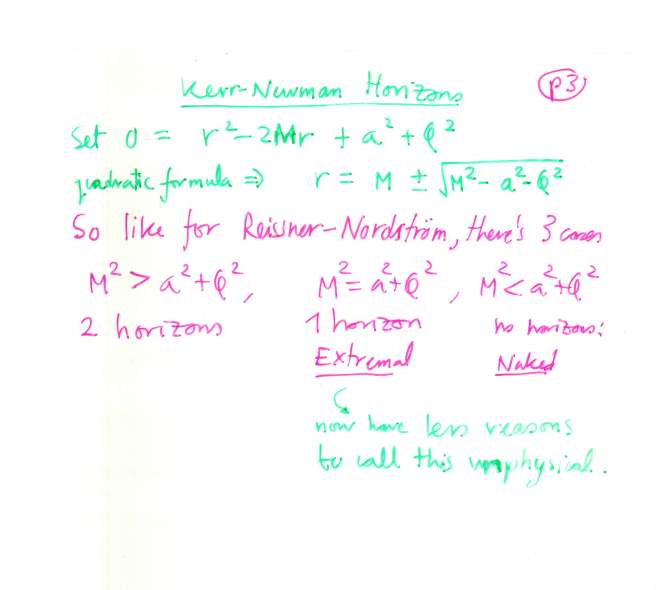 Kerr-Newman Horizons
p3
Set 0 = r² - 2Mr + a² + Q²
quadratic formula ⇒ r = M ± √M² - a² - Q²
So like for Reissner-Nordström, there's 3 cases
M² > a² + Q², M² = a² + Q², M² < a² + Q²
2 horizons 1 horizon no horizons:
Extremal Naked
now have less reasons
to call this unphysical.